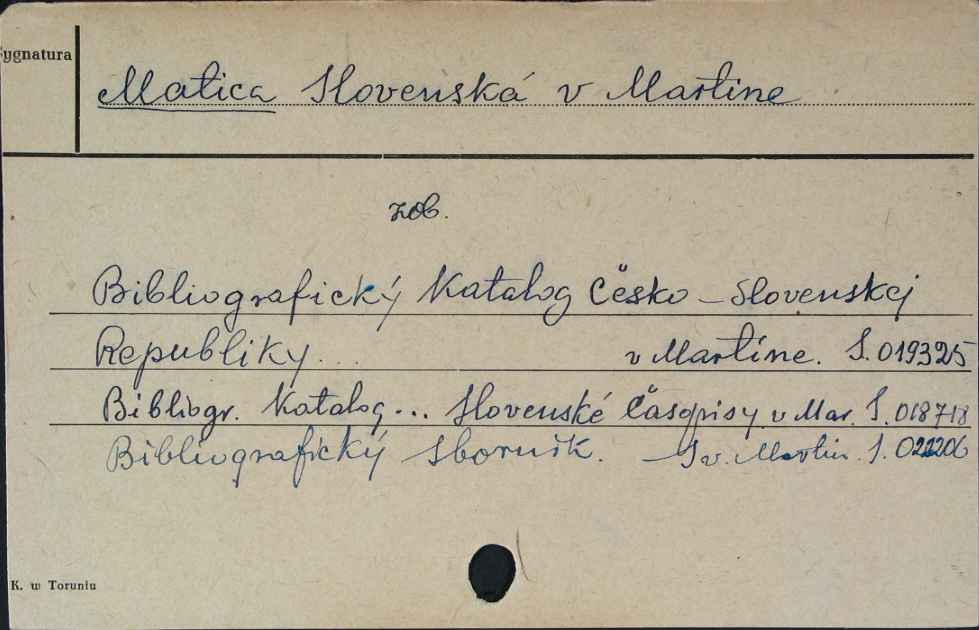 ygnatura
Matica Slovenská v Martine
zob.
Bibliografický Katalog Česko-Slovenskej
Republiky... v Martine. S. 019325
Bibliogr. Katalog... Slovenské Časopisy v Mar. S. 018718
Bibliografický Sborník. – Sv. Martin. S.
K. w Toruniu